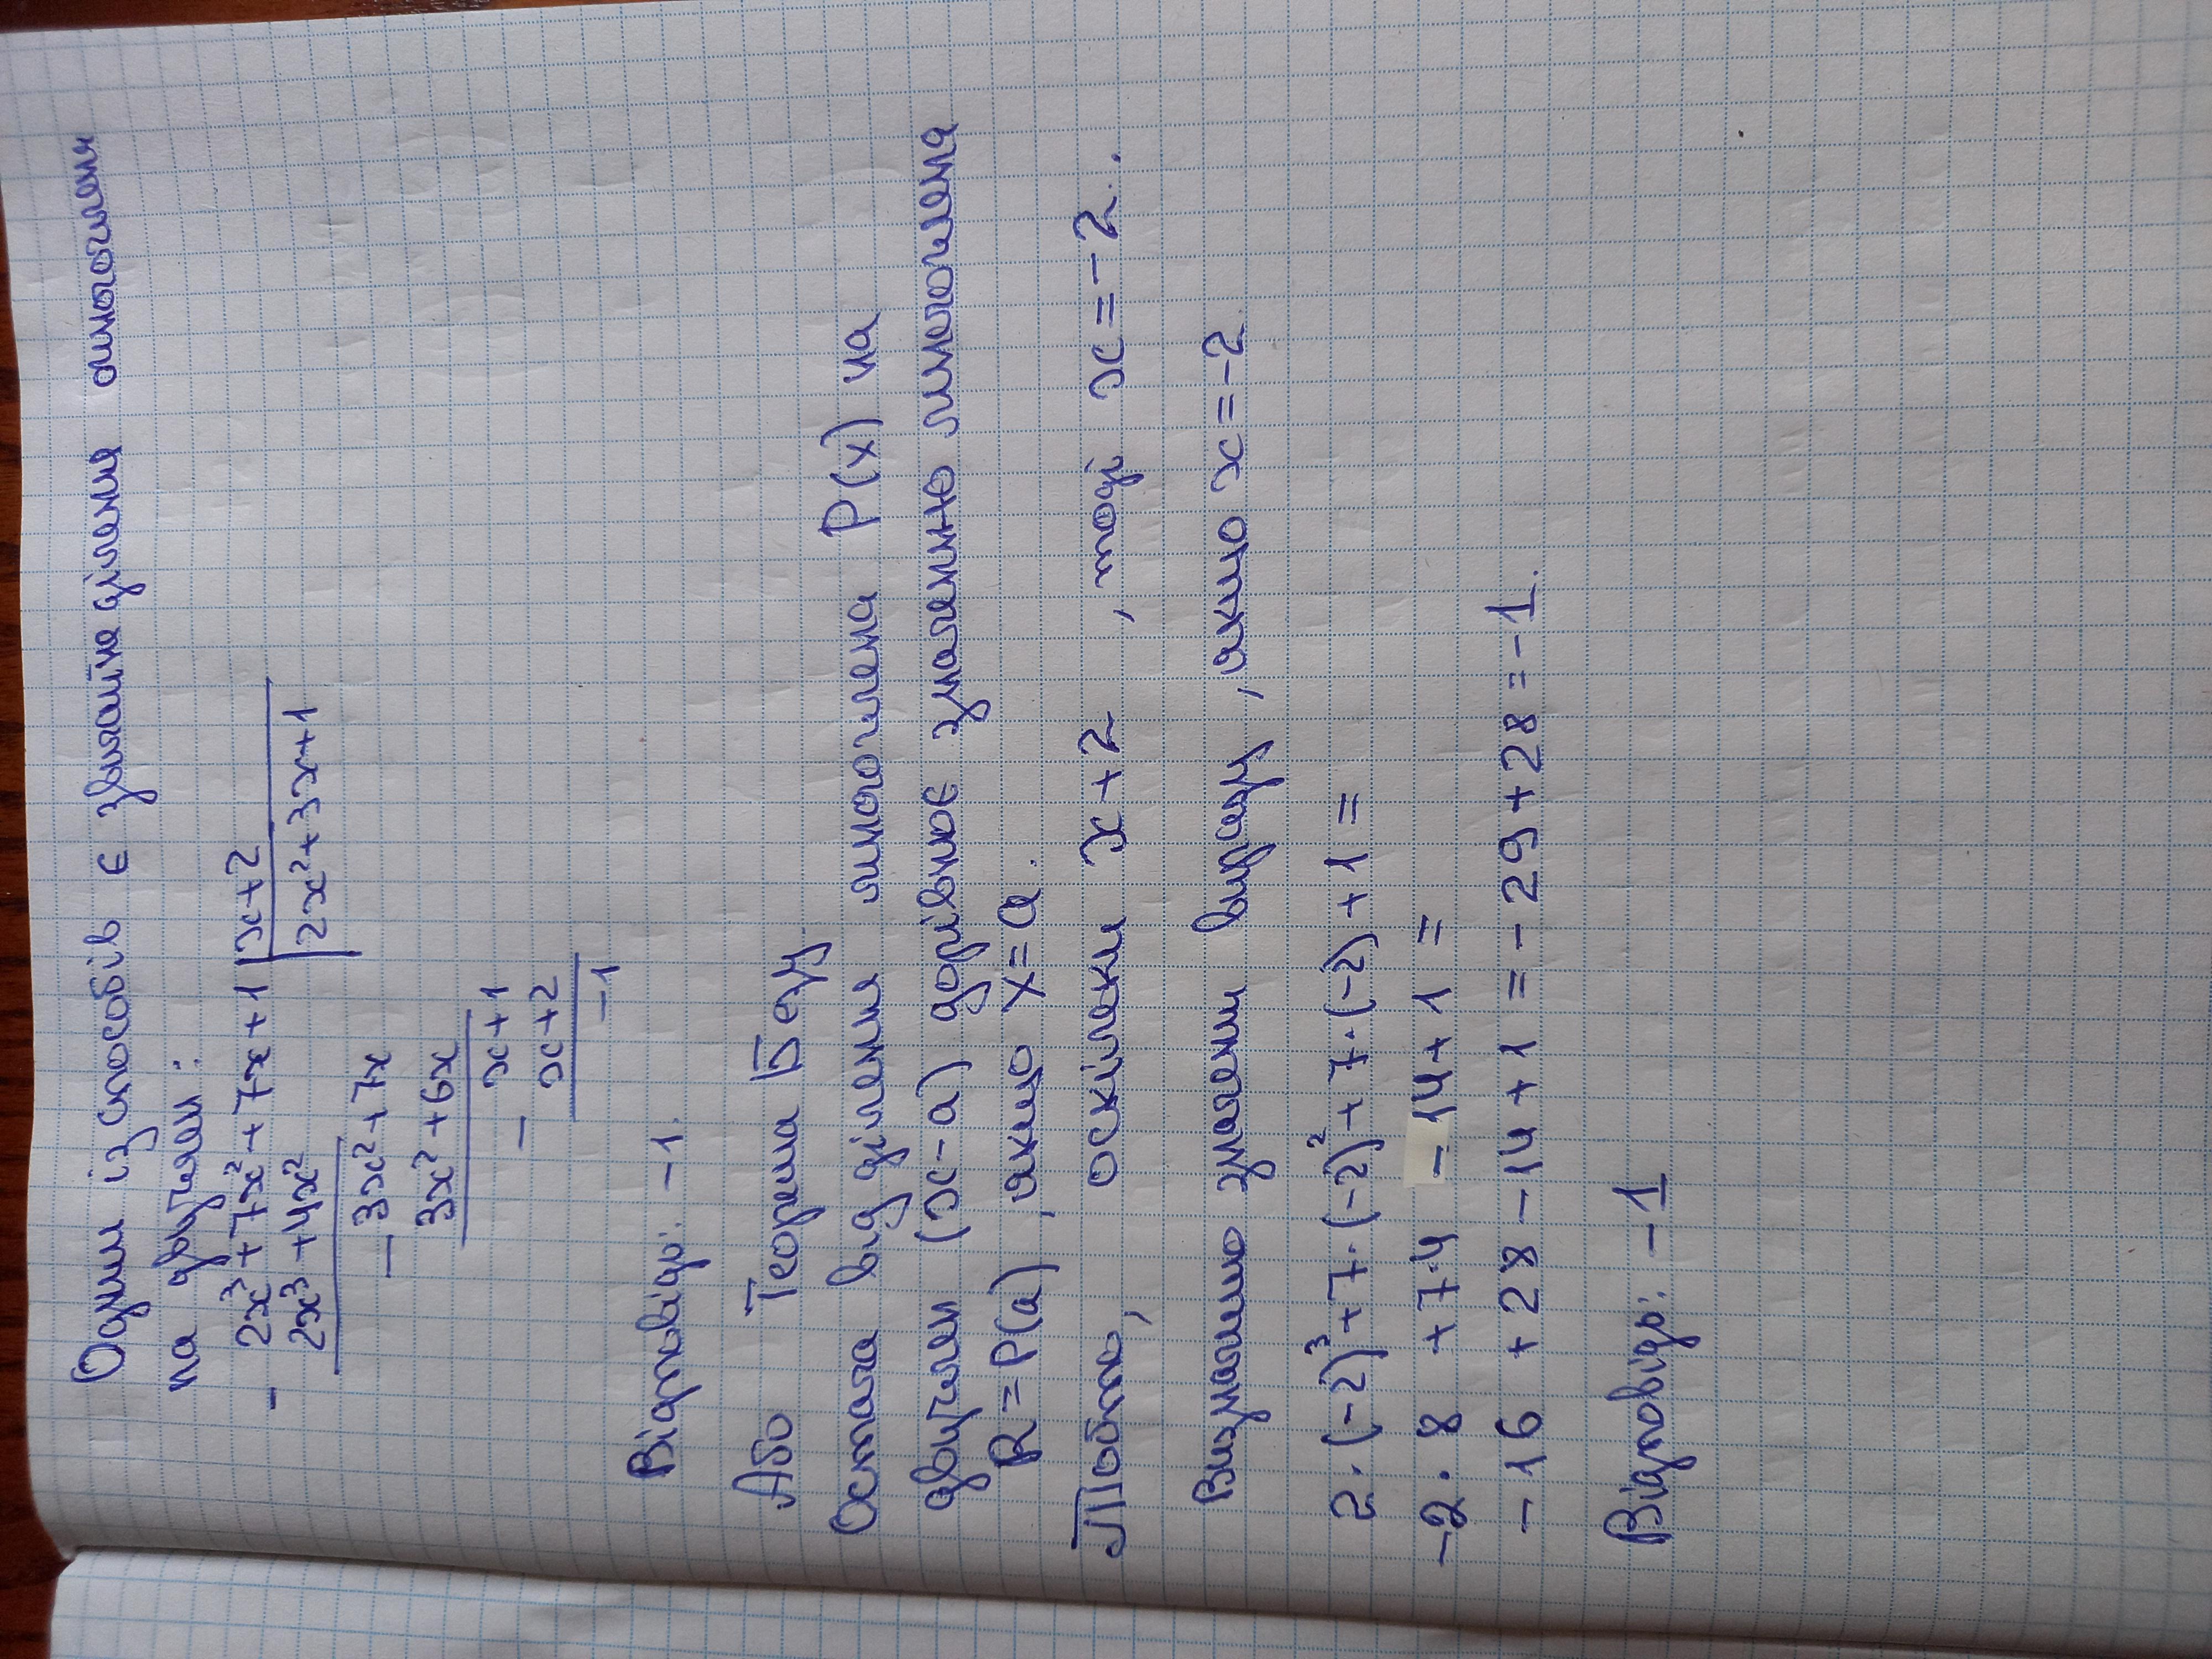 Один із способів є звичайне ділення многочлен
на двучлен:
– 2x³+7x²+7x+1 | x+2
2x³+4x² | 2x²+3x+1
– 3x²+7x
3x²+6x
– x+1
x+2
–1
Відповідь: –1.
Або Теорема Безу
Остача від ділення многочлена P(x) на
двучлен (x-a) дорівнює значенню многочлена
R=P(a), якщо x=a.
Тобто, оскільки x+2, тоді x=-2.
Визначаємо значення виразу, якщо x=-2.
2·(-2)³+7·(-2)²+7·(-2)+1=
-2·8 +7·4 -14+1=
-16+28-14+1=-29+28=-1.
Відповідь: -1